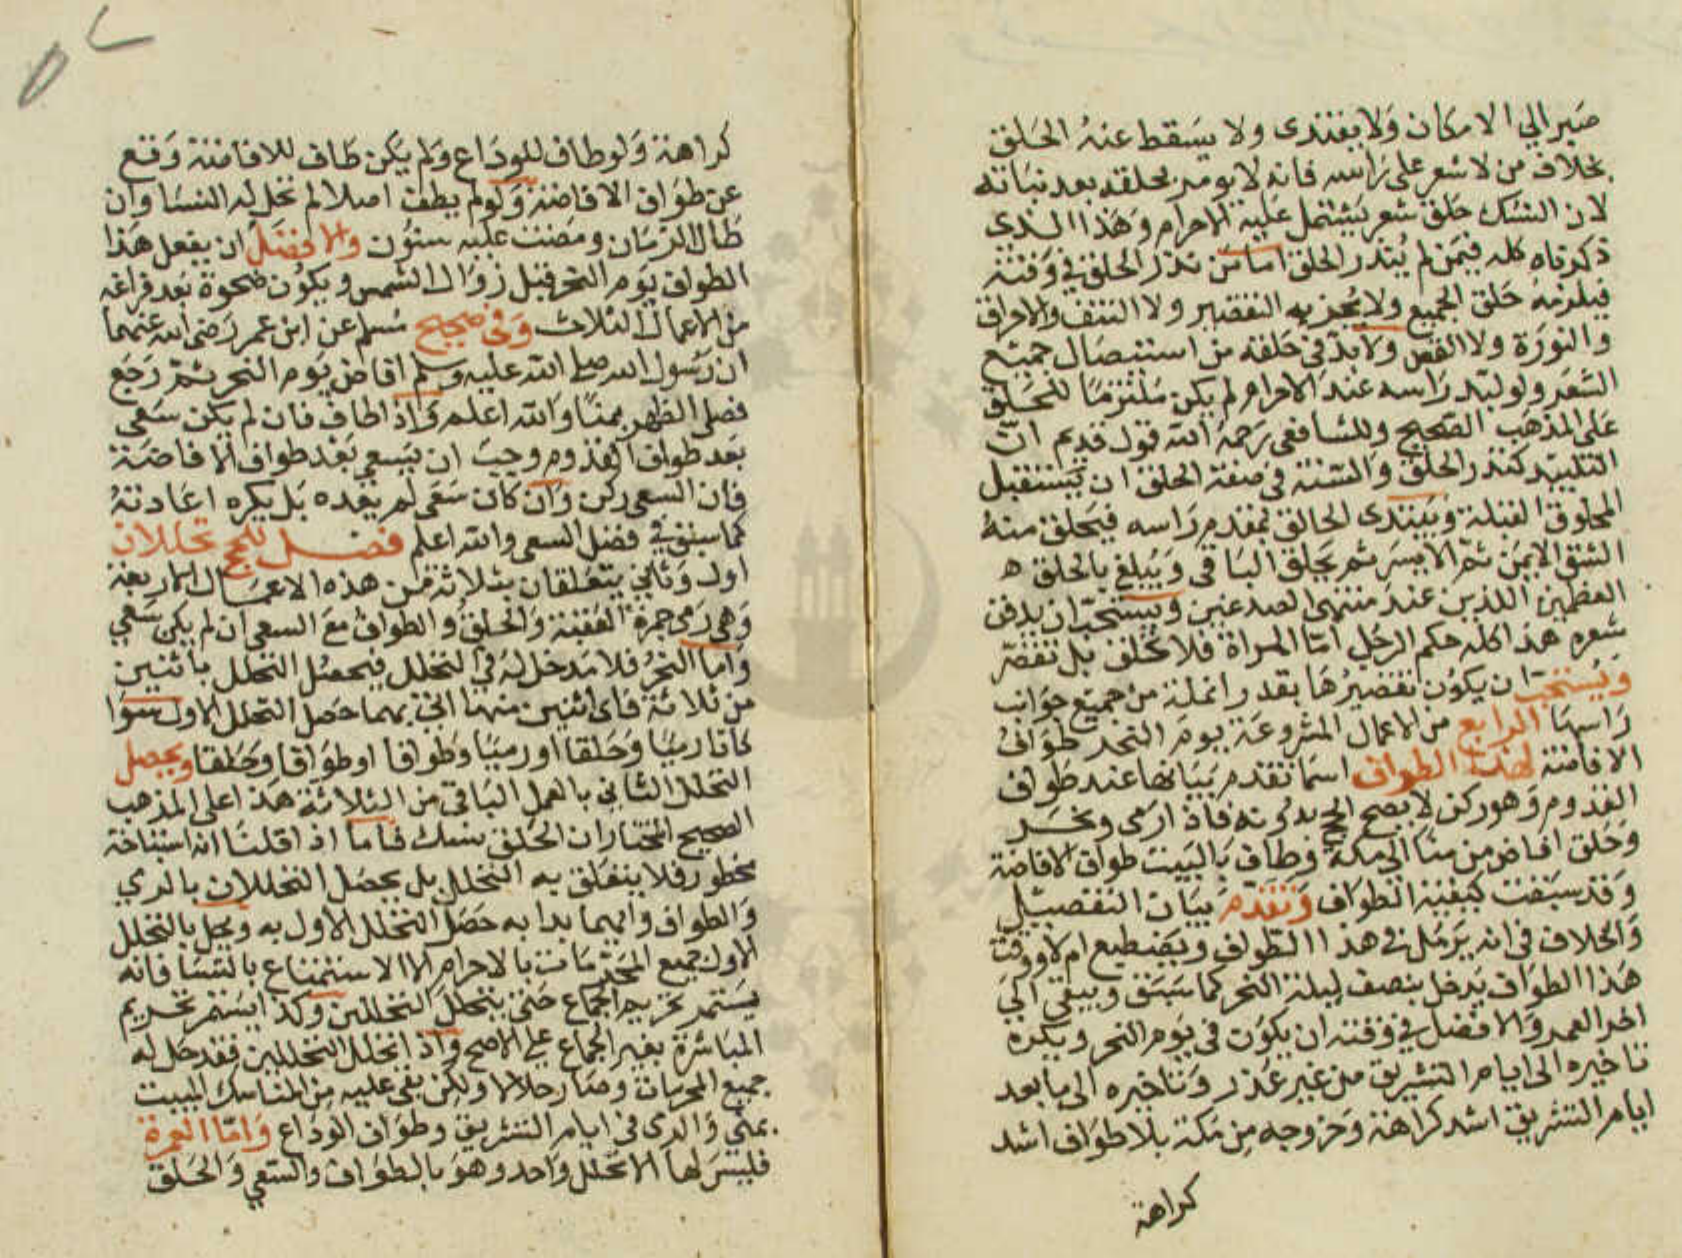 صبر الي الامكان ولا يفتدى ولا يسقط عنه الحلق
بخلاف من لا شعر على راسه فانه لا يومر بحلقه بعد نباته
لان النسك حلق شعر يشتمل عليه الاحرام وهذا الذى
ذكرناه كله فيمن لم ينذر الحلق اما من نذر الحلق في وقته
فيلزمه حلق الجميع ولا يجزيه التقصير ولا النتف والاحراق
والنورة ولا القص ولا بد في حلقه من استيصال جميع
الشعر ولو لبد راسه عند الاحرام لم يكن ملتزما للحلق
على المذهب الصحيح وللشافعى رحمه الله قول قديم ان
التلبيد كنذر الحلق والسنة في صفة الحلق ان يستقبل
المحلوق القبلة ويبتدى الحالق بمقدم راسه فيحلق منه
الشق الايمن ثم الايسر ثم يحلق الباقى ويبلغ بالحلق ه
العظمين اللذين عند منتهى الصدغين ويستحب ان يدفن
شعره هذا كله حكم الرجل اما المراة فلا تحلق بل تقصر
ويستحب ان يكون تقصيرها بقدر انملة من جميع جوانب
راسها الرابع من الاعمال المشروعة يوم النحر طواف
الافاضة لهذا الطواف اسما تقدم بيانها عند طواف
القدوم وهو ركن لا يصح الحج بدونه فاذا رمى ونحر
وحلق افاض من منا الى مكة وطاف بالبيت طواف الافاضة
وقد سبقت كيفية الطواف وتقدم بيان التفصيل
والخلاف في انه يرمل في هذا الطواف ويضطبع ام لا ووقت
هذا الطواف يدخل بنصف ليلة النحر كما سبق ويبقى الي
اخر العمر والافضل في وقته ان يكون في يوم النحر ويكره
تاخيره الى ايام التشريق من غير عذر وتاخيره الى ما بعد
ايام التشريق اشد كراهة وخروجه من مكة بلا طواف اشد
كراهة
كراهة ولو طاف للوداع ولم يكن طاف للافاضة وقع
عن طواف الافاضة ولو لم يطف اصلا لم تحل له النسا وان
طال الزمان ومضت عليه سنون والافضل ان يفعل هذا
الطواف يوم النحر قبل زوال الشمس ويكون ضحوة بعد فراغه
من الاعمال الثلاث وفي صحيح مسلم عن ابن عمر رضى الله عنهما
ان رسول الله صلى الله عليه وسلم افاض يوم النحر ثم رجع
فصلى الظهر بمنا والله اعلم واذا طاف فان لم يكن سعى
بعد طواف القدوم وجب ان يسعى بعد طواف الافاضة
فان السعى ركن وان كان سعى لم يعده بل يكره اعادته
كما سبق في فصل السعى والله اعلم فصل للحج تحللان
اول وثاني يتعلقان بثلاثة من هذه الاعمال الاربعة
وهى رمى جمرة العقبة والحلق والطواف مع السعى ان لم يكن سعي
واما النحر فلا مدخل له في التحلل فيحصل التحلل باثنين
من ثلاثة فاى اثنين منها اتى بهما حصل التحلل الاول سوا
كانا رميا وحلقا او رميا وطوافا او طوافا وحلقا ويحصل
التحلل الثانى بالعمل الباقى من الثلاثة هذا على المذهب
الصحيح المختار ان الحلق نسك فاما اذا قلنا انه استباحة
محظور فلا يتعلق به التحلل بل يحصل التحللان بالرمي
والطواف وايهما بدا به حصل التحلل الاول به ويحل بالتحلل
الاول جميع المحرمات بالاحرام الا الاستمتاع بالنسا فانه
يستمر تحريم الجماع حتى يتحلل التحللين وكذا يستمر تحريم
المباشرة بغير الجماع على الاصح واذا تحلل التحللين فقد حل له
جميع المحرمات وصار حلالا ولكن بقى عليه من المناسك المبيت
بمنى والرمى في ايام التشريق وطواف الوداع واما العمرة
فليس لها الا تحلل واحد وهو بالطواف والسعي والحلق